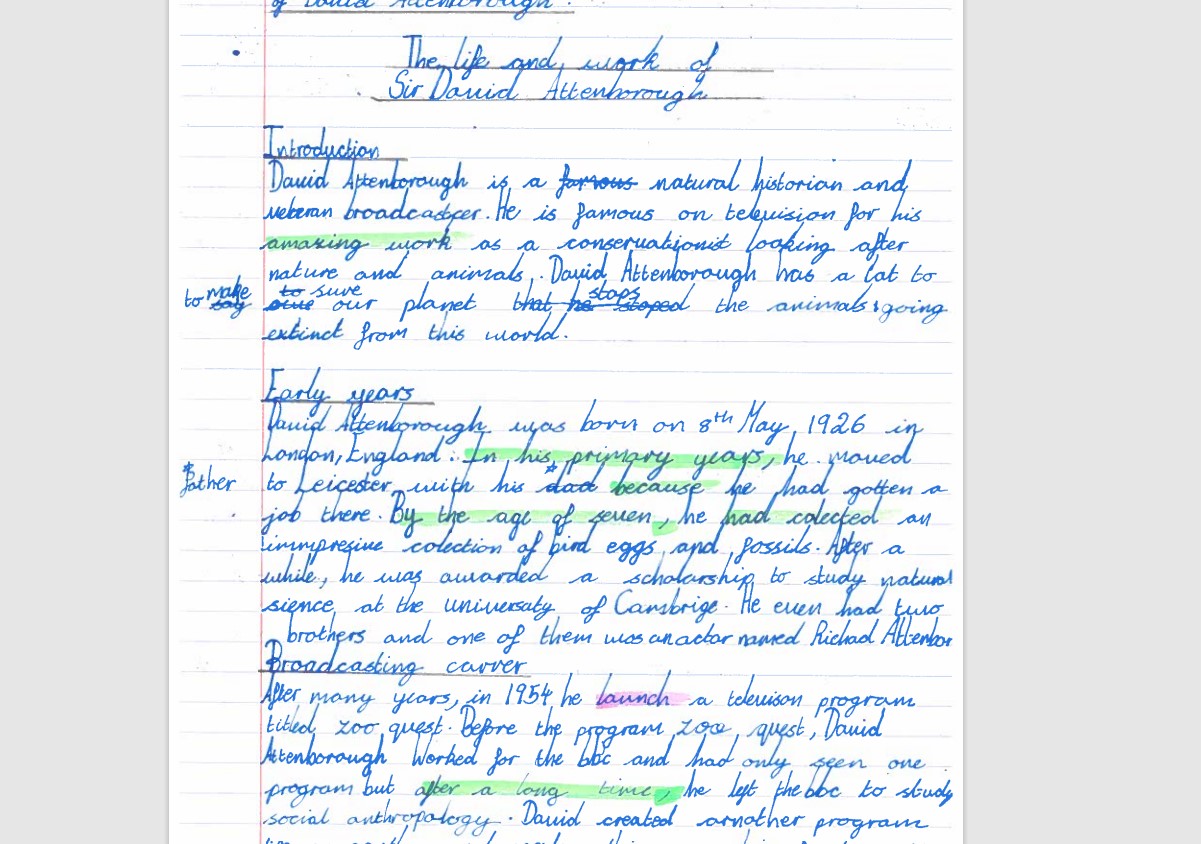 of David Attenborough.
The life and work of
Sir David Attenborough
Introduction
David Attenborough is a famous natural historian and
veteran broadcaster. He is famous on television for his
amazing work as a conservationist looking after
nature and animals. David Attenborough has a lat to
to make say to sure our planet that he stoped stops the animals going
extinct from this world.
Early years
David Attenborough was born on 8th May, 1926 in
London, England. In his primary years, he moved
to Leicester with his dad *father because he had gotten a
job there. By the age of seven, he had colected an
immpresive colection of bird eggs and fossils. After a
while, he was awarded a scholarship to study natural
sience at the universaty of Cambrige. He even had two
brothers and one of them was an actor named Richad Attenbor
Broadcasting carver
After many years, in 1954 he launch a televison program
titled zoo quest. Before the program zoo quest, David
Attenborough worked for the bbc and had only seen one
program but after a long time, he left the bbc to study
social anthropology. David created arnother program